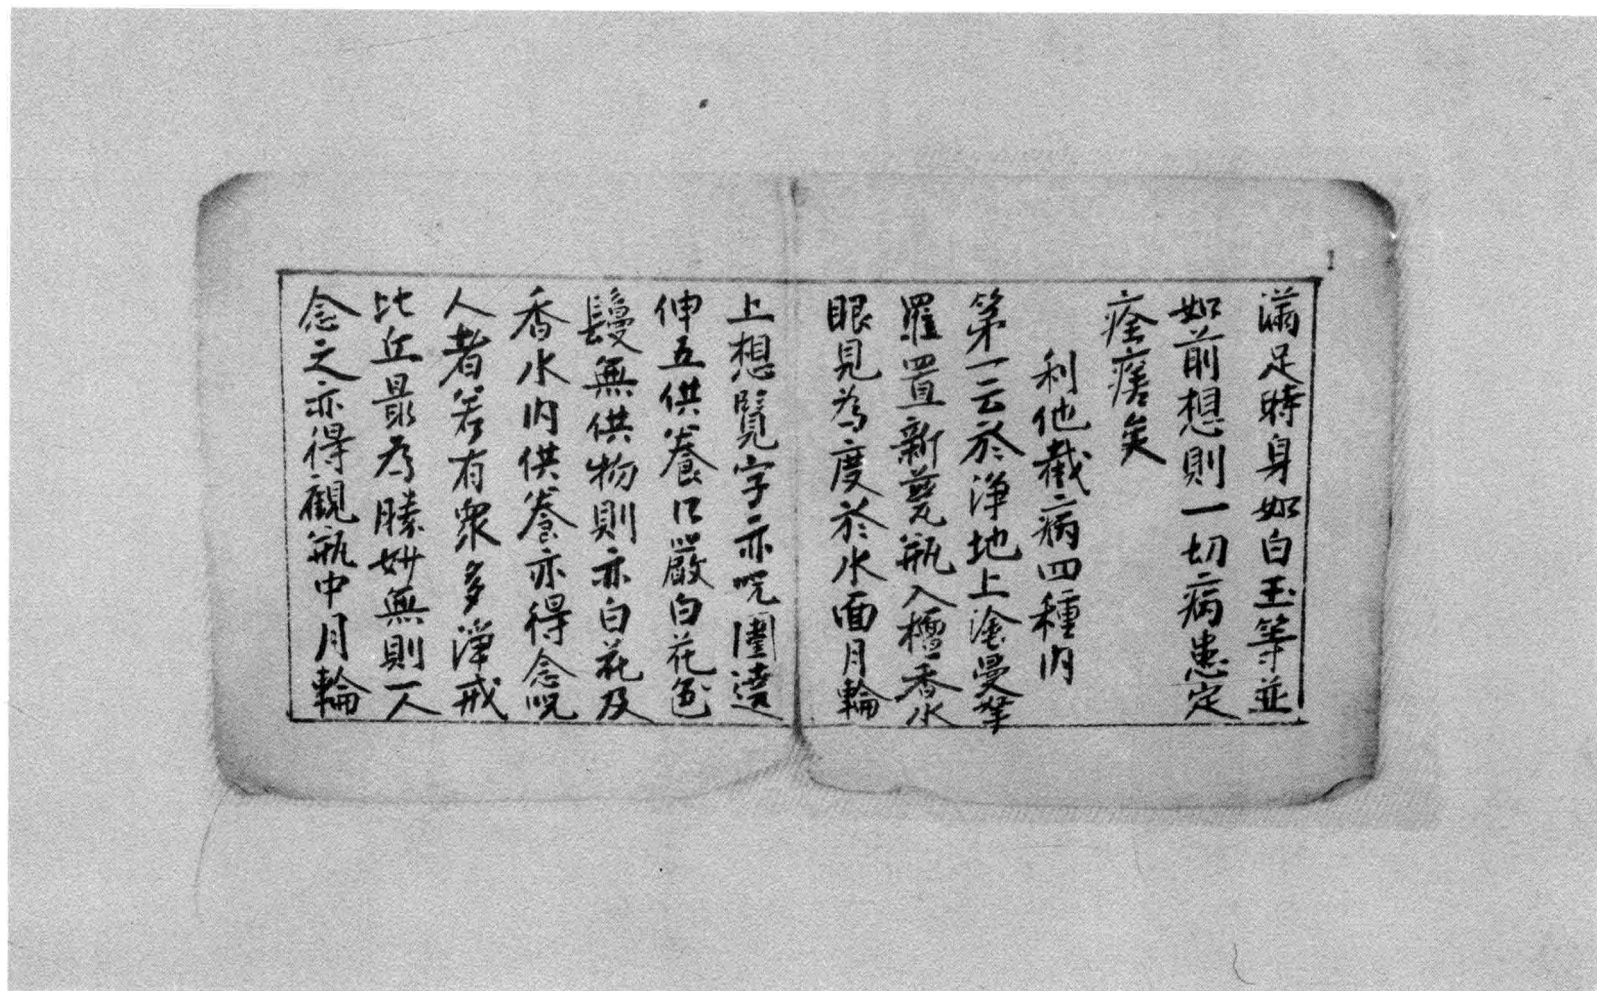 1
滿足時身如白玉等並
如前想則一切病患定
痊瘥矣
利他截病四種内
第一云於淨地上塗曼拏
羅置新甆瓶入檀香水
眼見為度於水面月輪
上想覧字亦呪圍遶
伸五供養口嚴白花
鬘無供物則亦白花及
香水内供養亦得念呪
人者若有衆多淨戒
比丘最為勝妙無則一人
念之亦得觀瓶中月輪